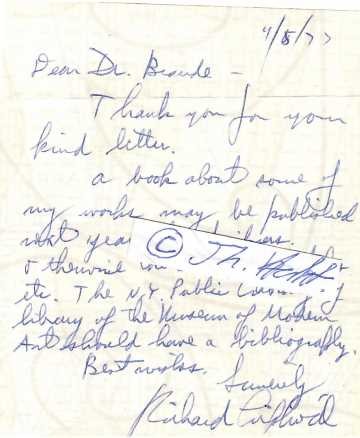 4/8/77
Dear Dr. Beaude –
Thank you for your
kind letter.
a book about some of
my works may be published
next year
© Th.
otherwise
etc. The N.Y. Public
library of the Museum of Modern
Art should have a bibliography.
Best wishes.
Sincerely
Richard